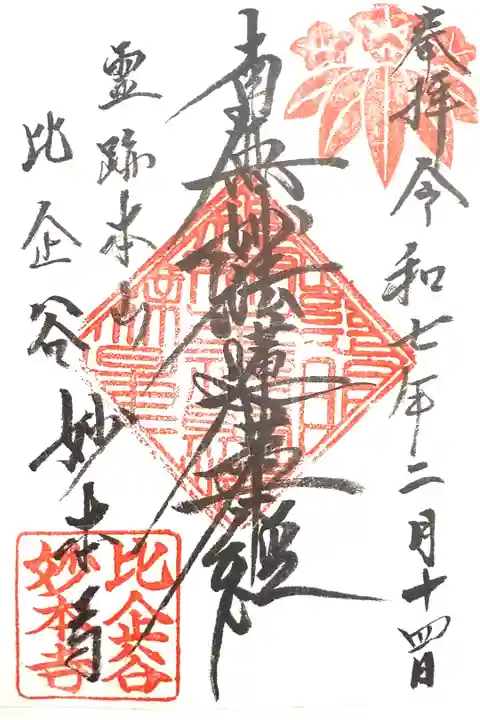 奉拝 令和七年二月十四日
南無妙法蓮華経
霊跡本山
比企谷 妙本寺
比企谷
妙本寺